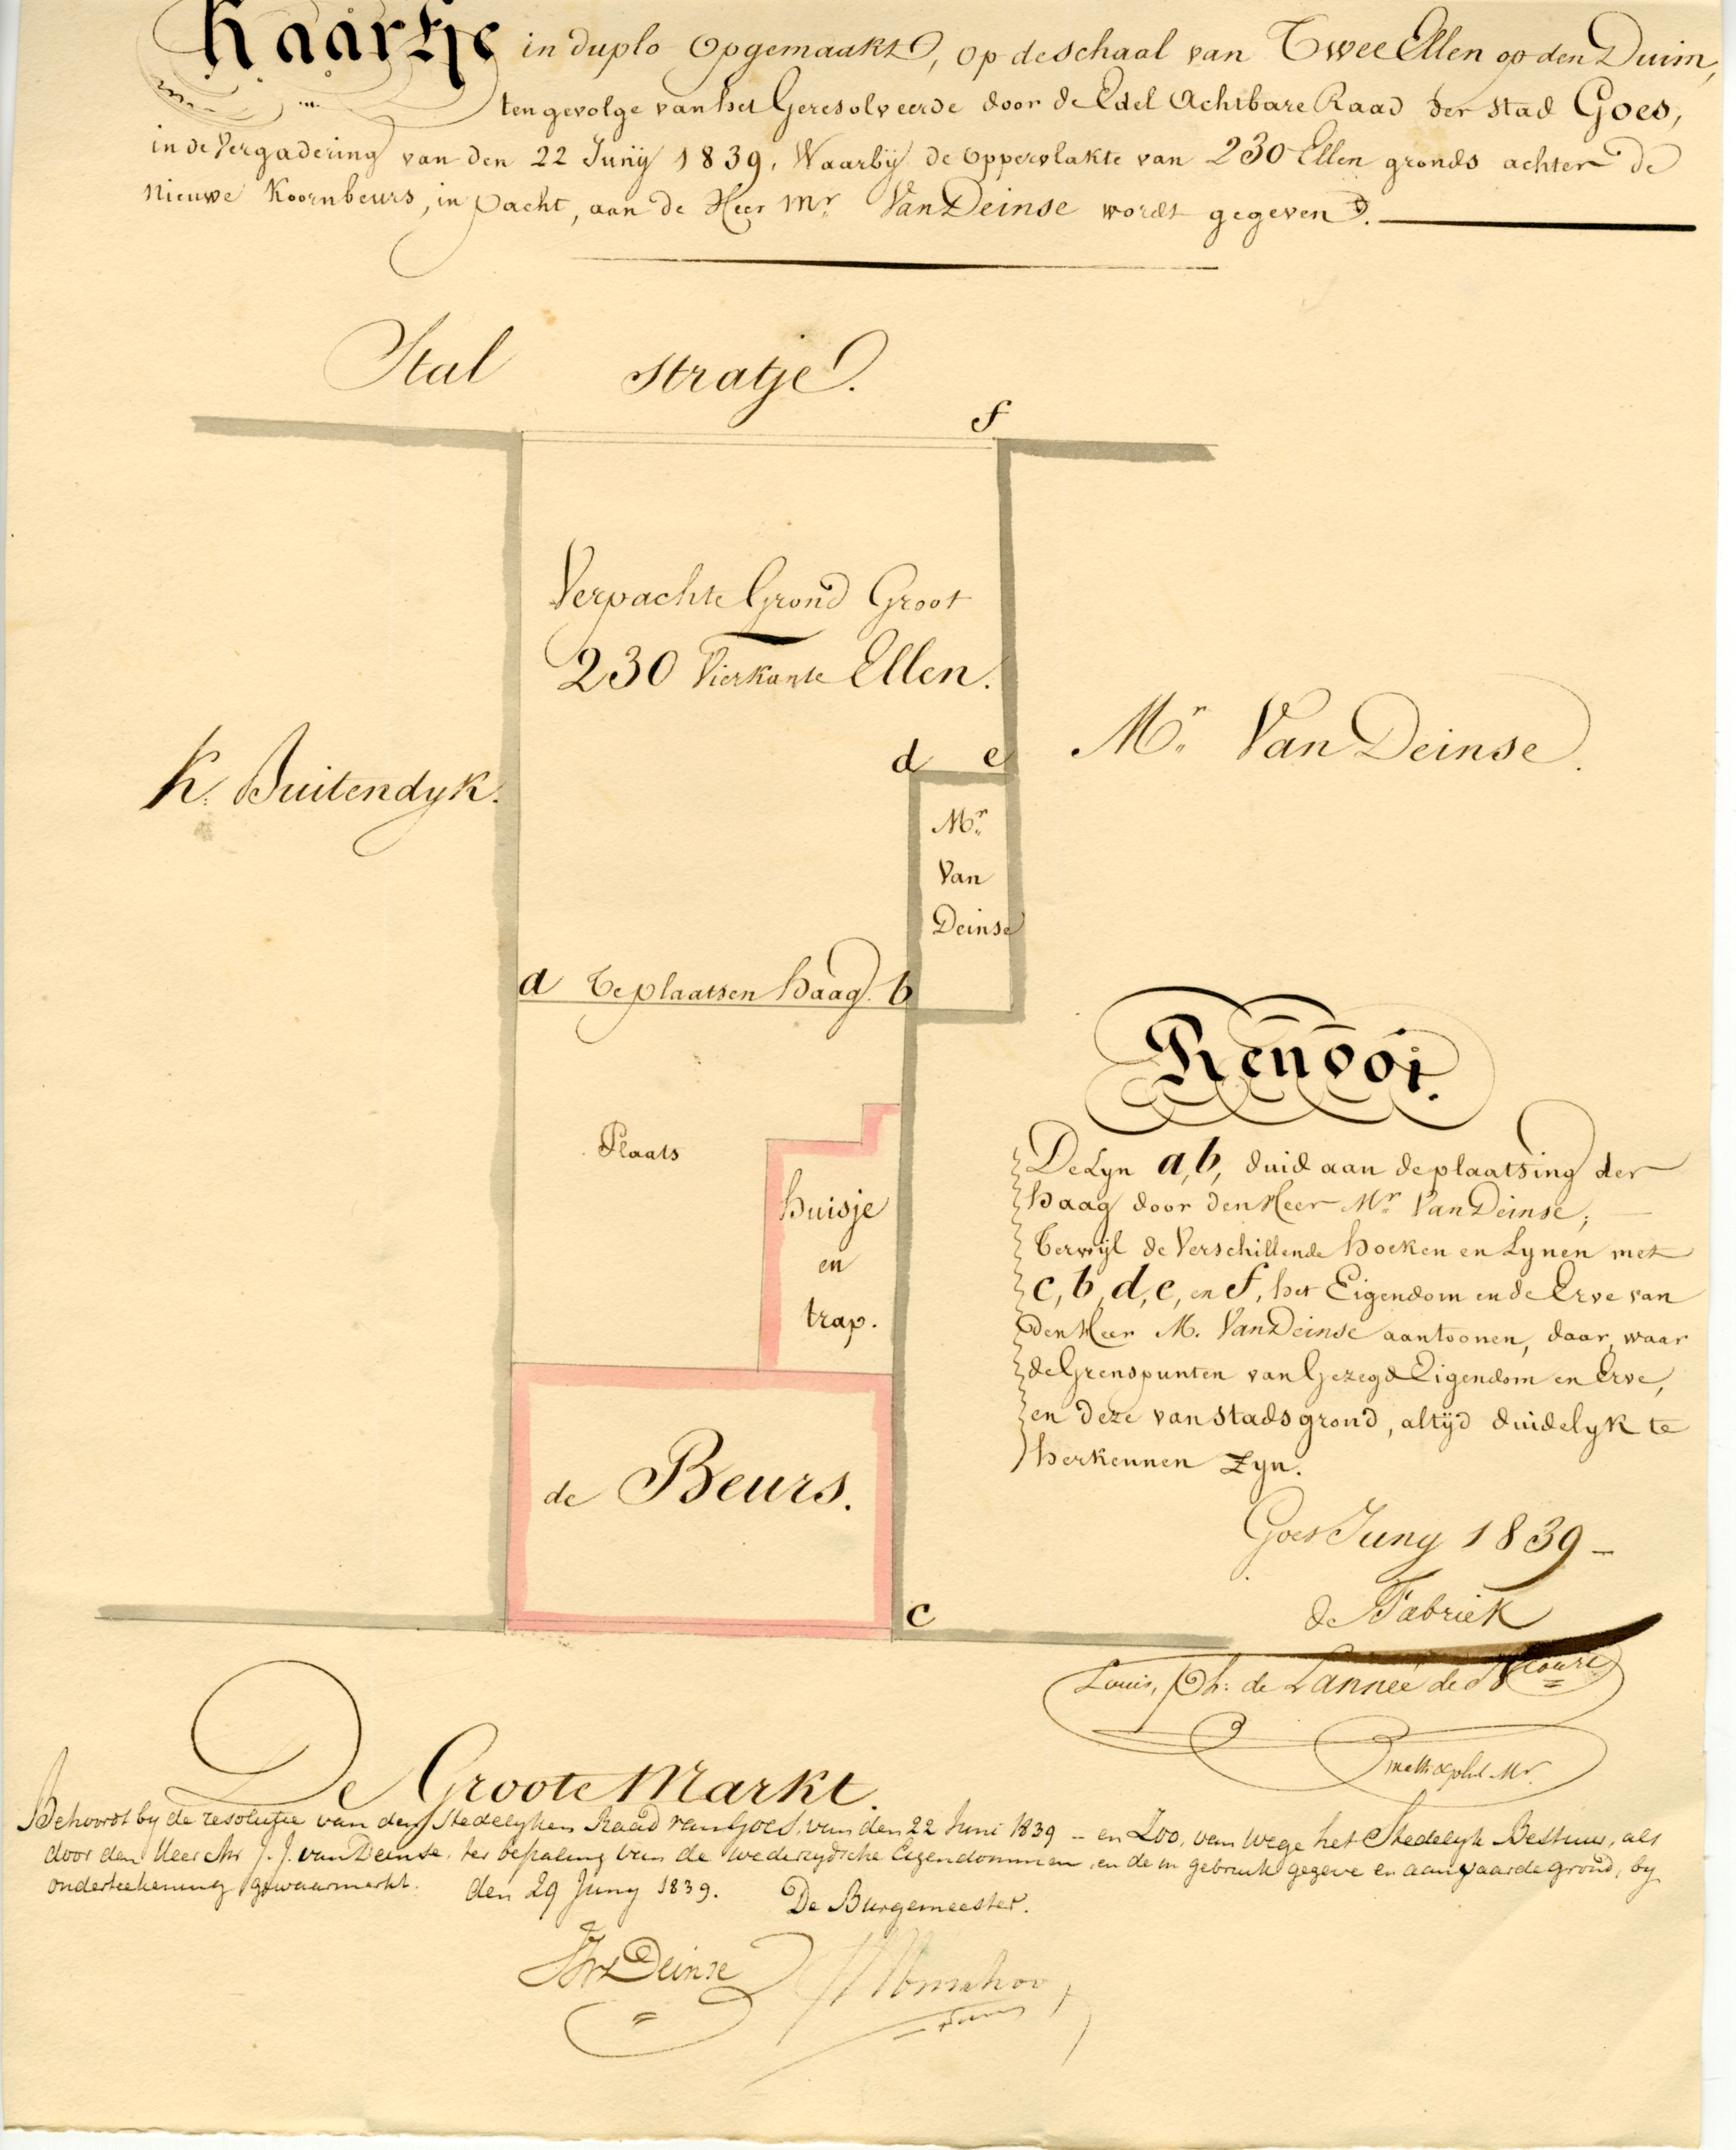 Kaartje in duplo Opgemaakt, op de schaal van Twee Ellen op den Duim,
ten gevolge van het Geresolveerde door de Edel Achtbare Raad der stad Goes,
in de Vergadering van den 22 Junij 1839, Waarbij de oppervlakte van 230 Ellen gronds achter de
nieuwe Koornbeurs, in pacht, aan de Heer Mr Van Deinse wordt gegeven.
Stal stratje.
f
Verpachte Grond Groot
230 Vierkante Ellen.
K. Buitendyk.
Mr. Van Deinse.
d e
Mr.
Van
Deinse
a Te plaatsen haag. b
Plaats
huisje
en
trap.
de Beurs.
c
Renvoi.
De Lyn a, b, duid aan de plaatsing der
haag door den Heer Mr. Van Deinse,
Terwijl de Verschillende hoeken en Lynen met
c, b, d, e, en f, het Eigendom en de Erve van
Den Heer M. Van Deinse aantoonen, daar waar
de Grenspunten van Gezegd Eigendom en Erve,
en deze van stads grond, altijd duidelyk te
herkennen zyn.
Goes Juny 1839 –
de Fabriek
Louis, Ph: de Lannee de
De Groote Markt.
Behoort by de resolutie van den Stedelyken Raad van Goes, van den 22 Juni 1839 – en Zoo, van wege het Stedelyk Bestuur, als
door den Heer Mr J. J. van Deinse, ter bepaling van de wederzydsche Eigendommen, en de in gebruik gegeve en aanvaarde grond, by
onderteekening gewaarmerkt. den 29 Juny 1839. De Burgemeester.
Deinse